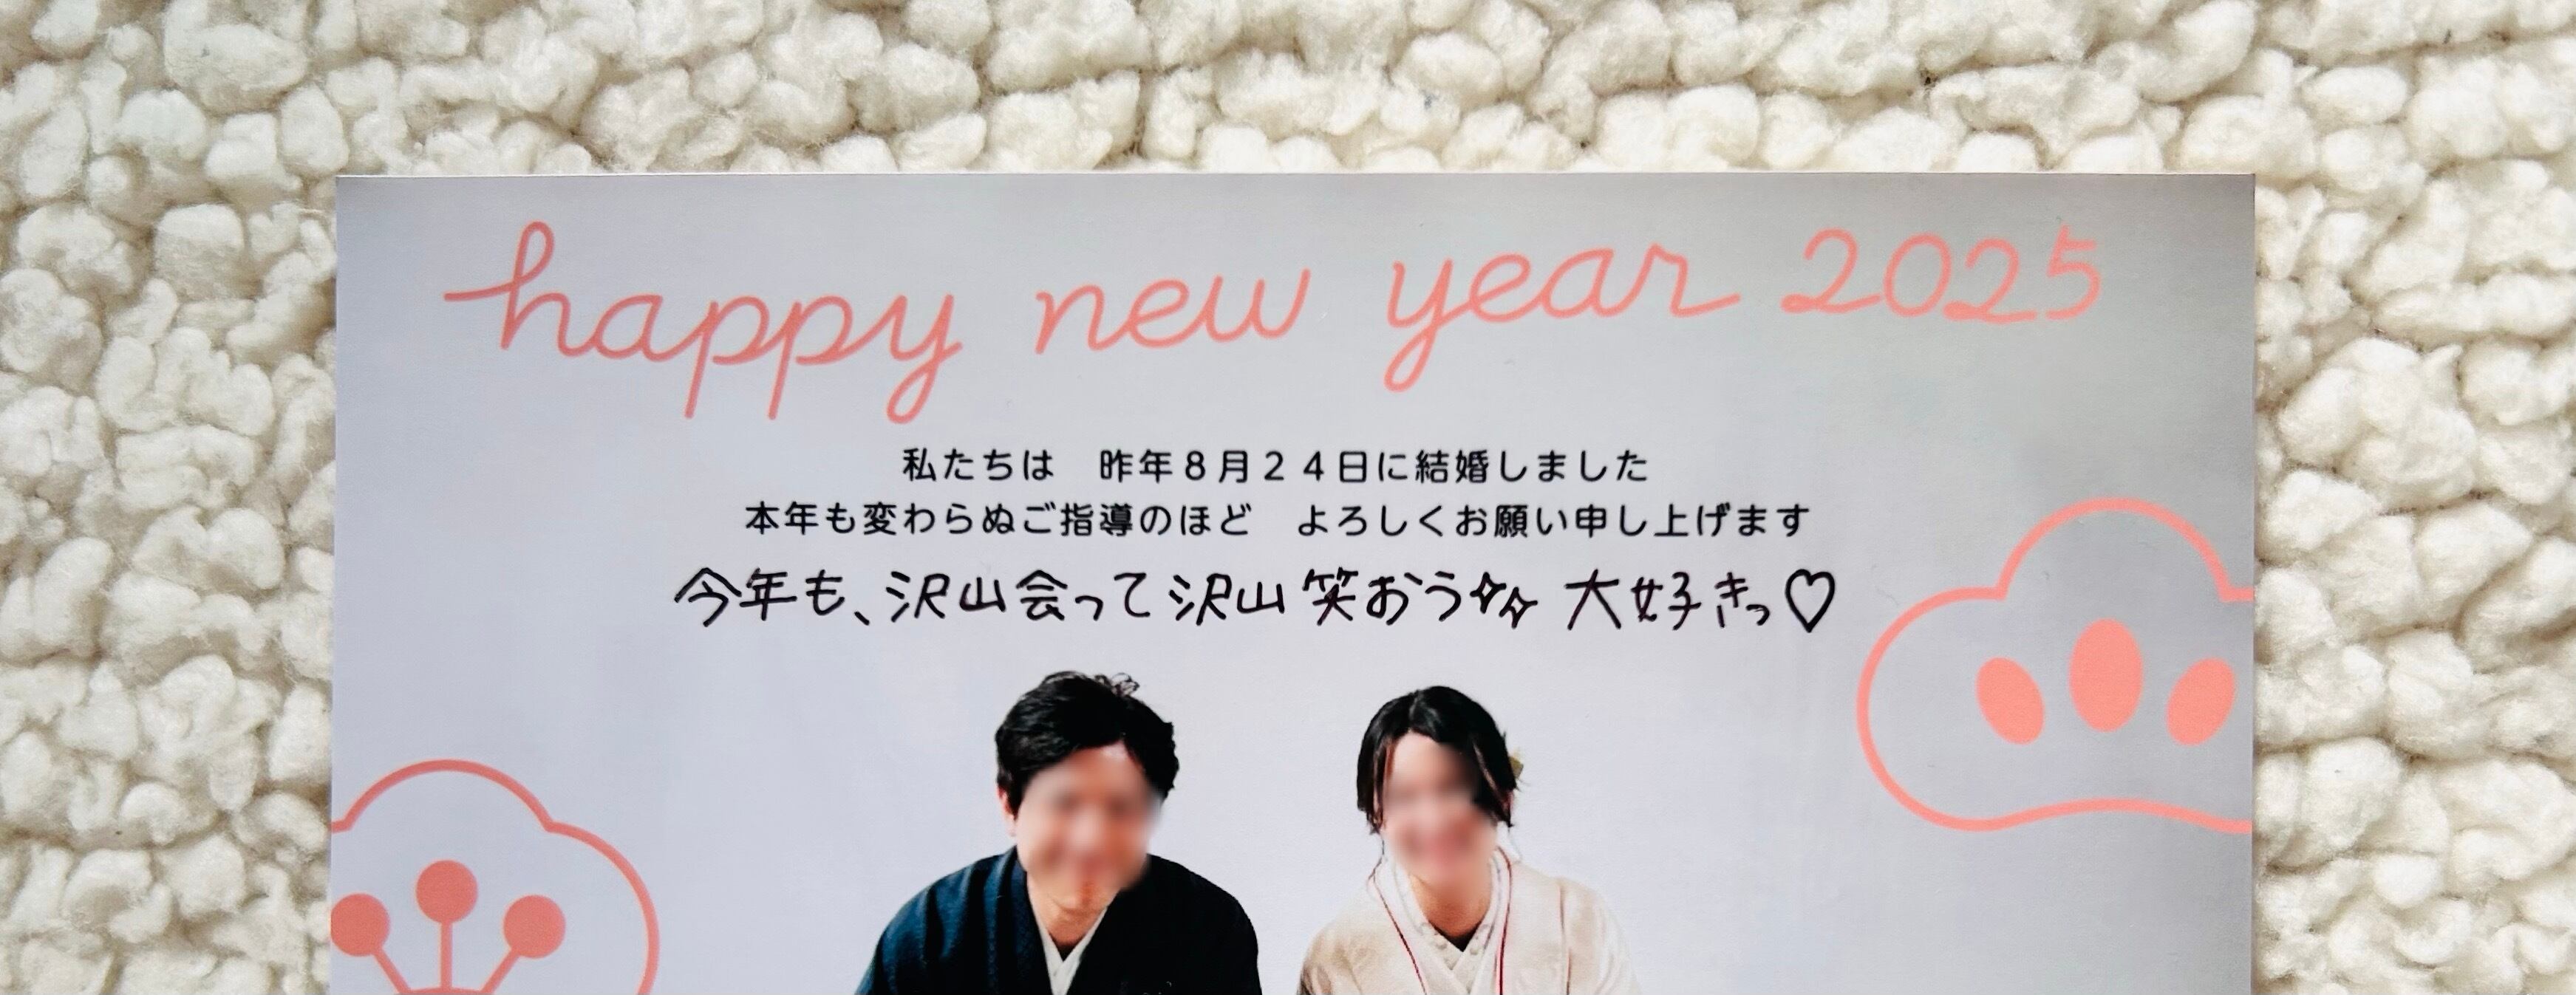 happy new year 2025
私たちは　昨年８月２４日に結婚しました
本年も変わらぬご指導のほど　よろしくお願い申し上げます
今年も、沢山会って沢山笑おう✨ 大好きっ♡